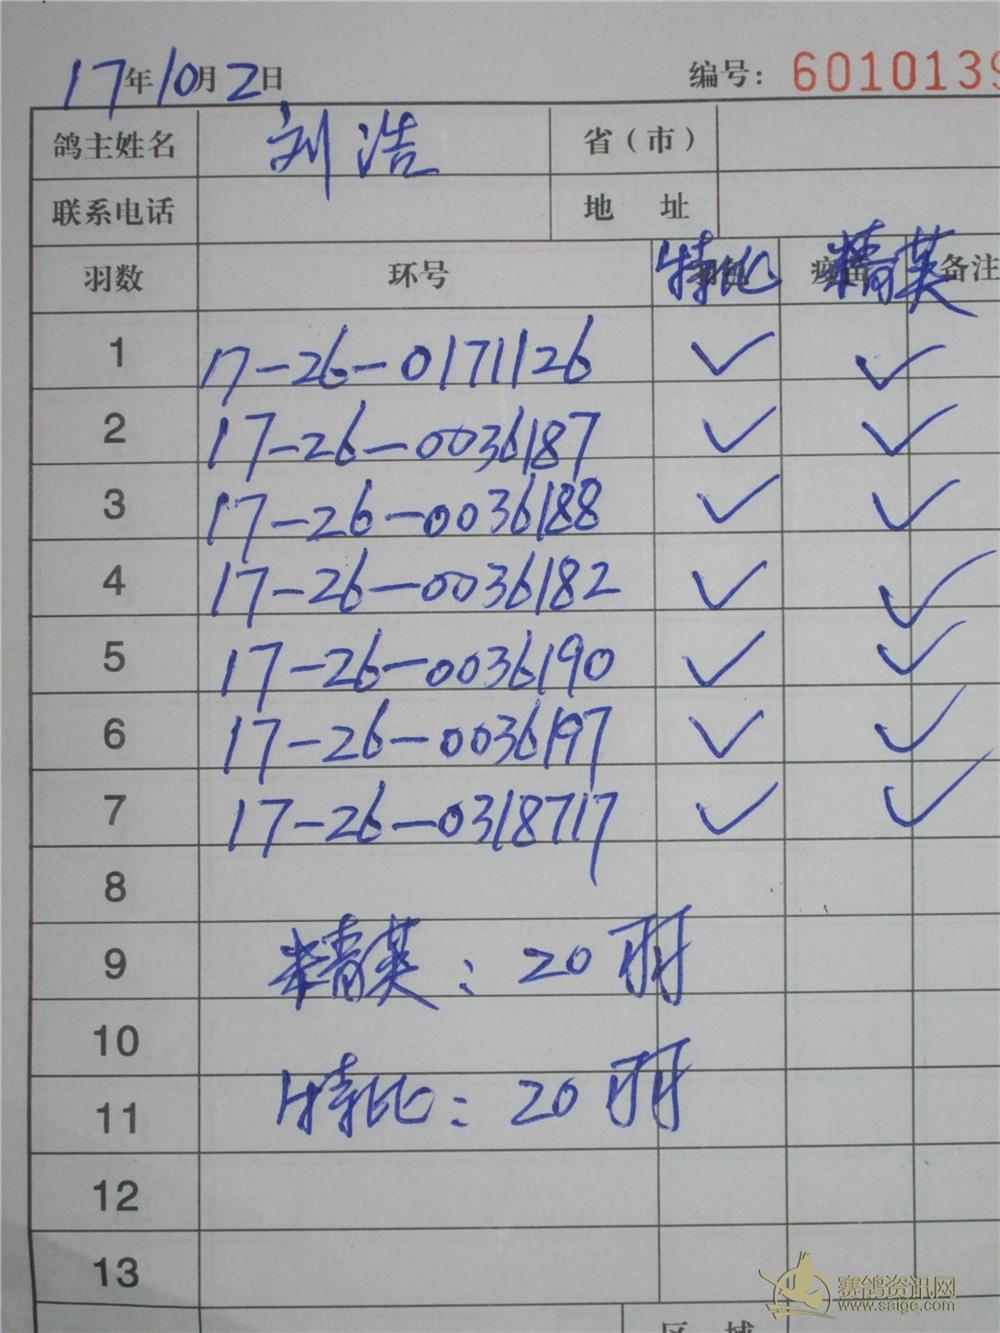 17年10月2日 编号：6010139
鸽主姓名 刘浩 省（市）
联系电话 地 址
羽数 环号 特比 精英 备注
1 17-26-0171126 ✓ ✓
2 17-26-0036187 ✓ ✓
3 17-26-0036188 ✓ ✓
4 17-26-0036182 ✓ ✓
5 17-26-0036190 ✓ ✓
6 17-26-0036197 ✓ ✓
7 17-26-0318717 ✓ ✓
8
9 精英：20羽
10
11 特比：20羽
12
13
区 域
赛鸽资讯网
www.saige.com